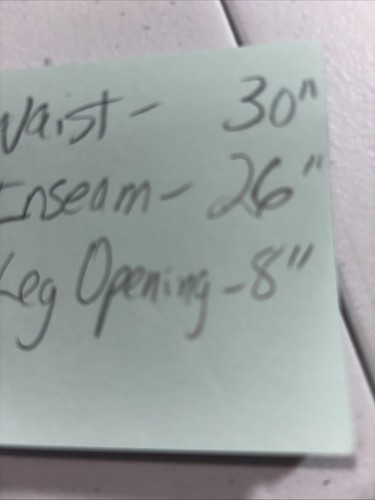 Waist - 30"
Inseam - 26"
Leg Opening - 8"